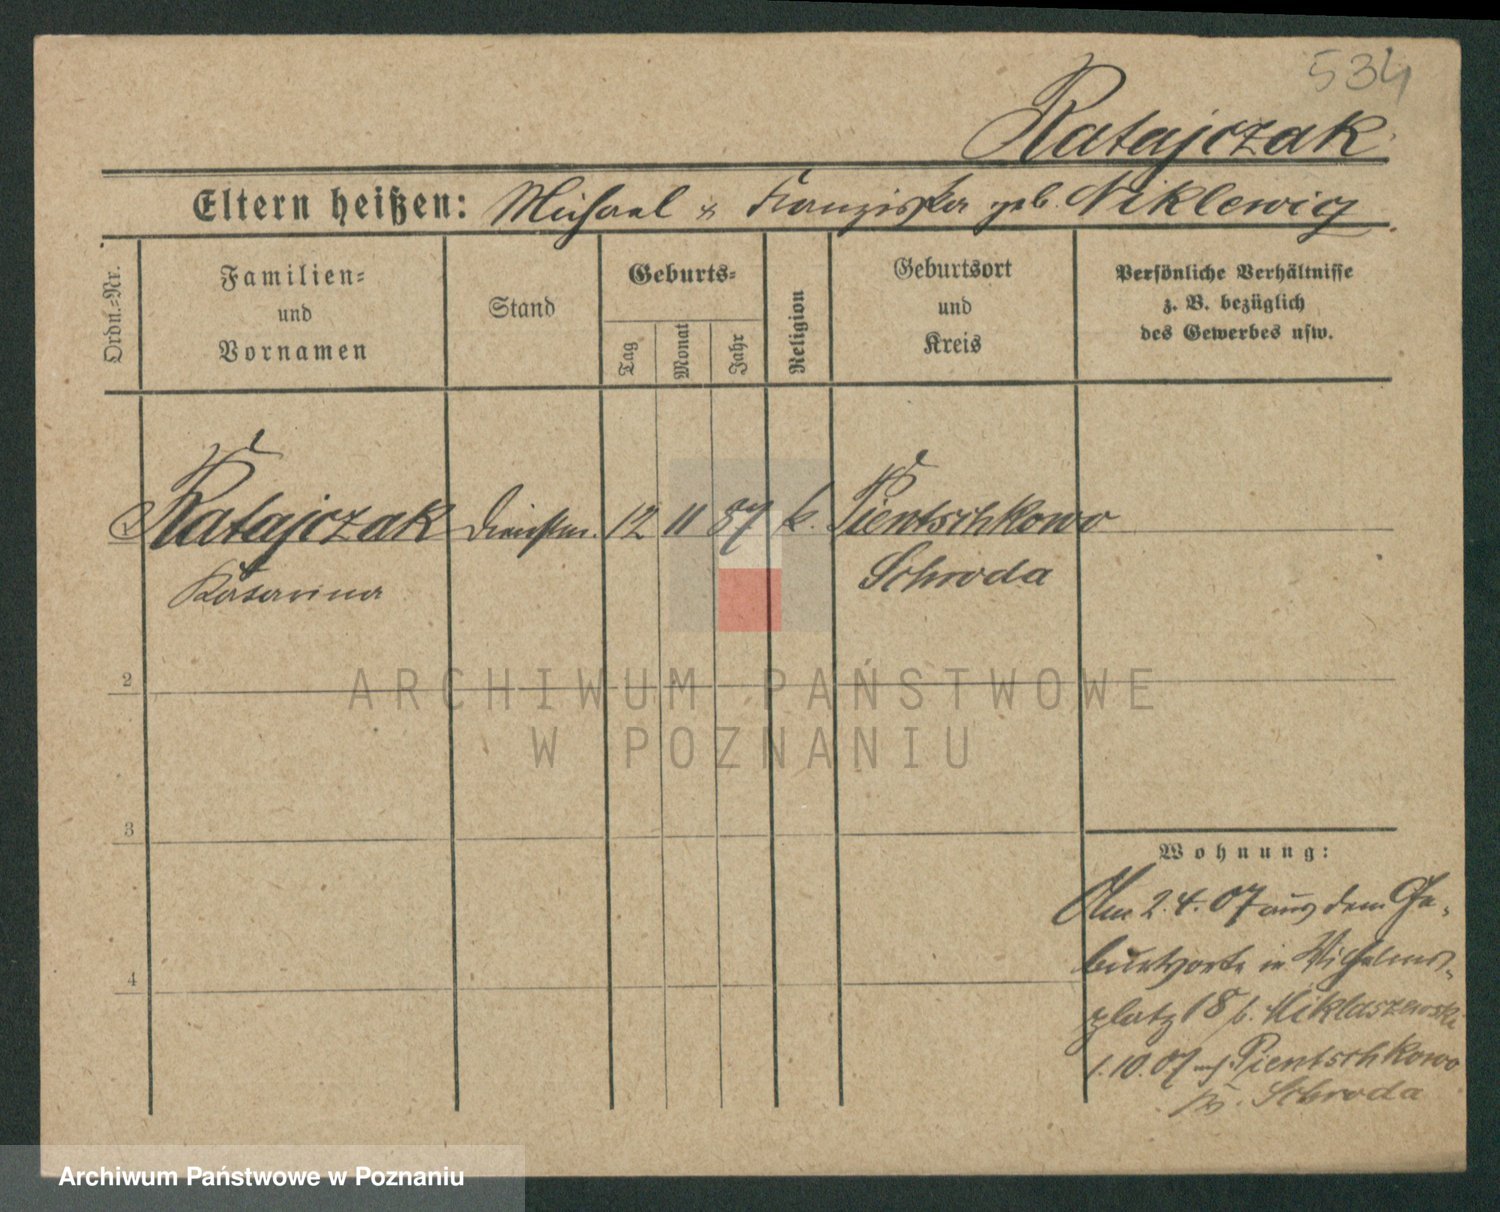 534
Ratajczak
Eltern heißen: Michael & Franziska geb. Niklewicz
Ordn.-Nr.
Familien-
und
Vornamen
Stand
Geburts-
Tag
Monat
Jahr
Religion
Geburtsort
und
Kreis
Persönliche Verhältnisse
z. B. bezüglich
des Gewerbes usw.
Ratajczak Dienstm. 12 11 87 k. Pientschkowo
Katarina Schroda
2
3
4
Wohnung:
Am 2.4.07 aus dem Ge-
burtsorte in Wilhelms-
platz 18 b. Niklaszewski
1.10.07 nach Pientschkowo
Kr. Schroda
ARCHIWUM PAŃSTWOWE
W POZNANIU
Archiwum Państwowe w Poznaniu